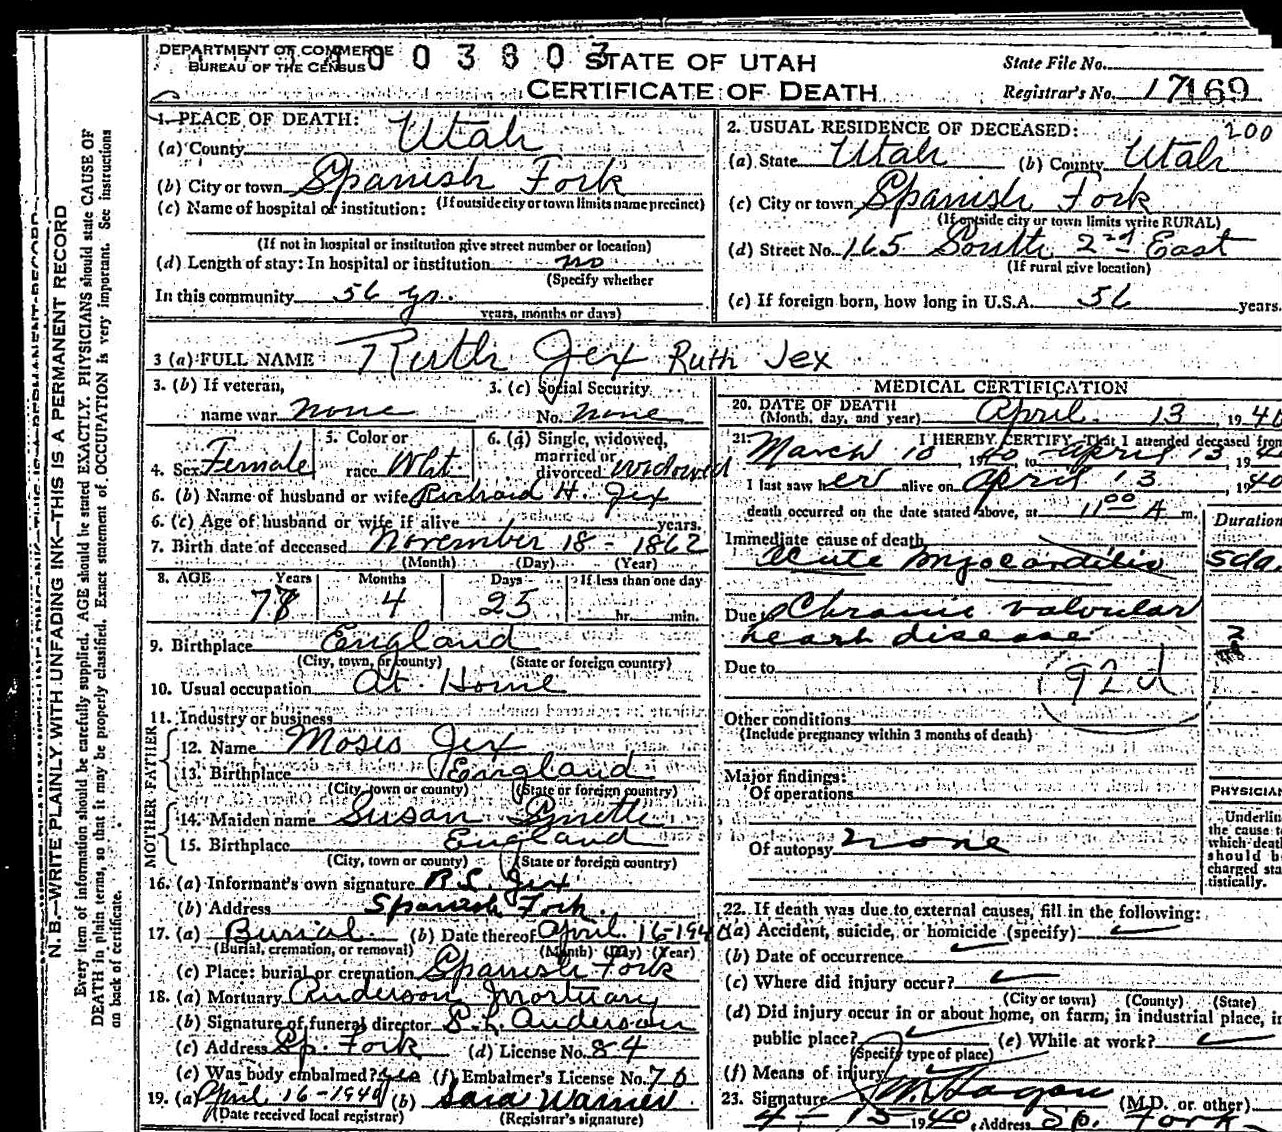 DEPARTMENT OF COMMERCE
BUREAU OF THE CENSUS
STATE OF UTAH
CERTIFICATE OF DEATH
State File No.
Registrar's No. 17169
200
1. PLACE OF DEATH:
(a) County Utah
(b) City or town Spanish Fork
(If outside city or town limits name precinct)
(c) Name of hospital or institution:
(If not in hospital or institution give street number or location)
(d) Length of stay: In hospital or institution no
(Specify whether
In this community 56 yrs.
years, months or days)
2. USUAL RESIDENCE OF DECEASED:
(a) State Utah (b) County Utah
(c) City or town Spanish Fork
(If outside city or town limits write RURAL)
(d) Street No. 165 South 2nd East
(If rural give location)
(e) If foreign born, how long in U.S.A. 56 years.
3 (a) FULL NAME Ruth Jex Ruth Jex
3. (b) If veteran,
name war none
3. (c) Social Security
No. none
4. Sex Female
5. Color or
race Whit
6. (a) Single, widowed,
married or
divorced widowed
6. (b) Name of husband or wife Richard H. Jex
6. (c) Age of husband or wife if alive years.
7. Birth date of deceased November 18 - 1862
(Month) (Day) (Year)
8. AGE Years Months Days If less than one day
78 4 25 hr. min.
9. Birthplace England
(City, town, or county) (State or foreign country)
10. Usual occupation At Home
11. Industry or business
FATHER
12. Name Moses Jex
13. Birthplace England
(City, town or county) (State or foreign country)
MOTHER
14. Maiden name Susan
15. Birthplace England
(City, town or county) (State or foreign country)
16. (a) Informant's own signature R.L. Jex
(b) Address Spanish Fork
17. (a) Burial (b) Date thereof April 16-1940
(Burial, cremation, or removal) (Month) (Day) (Year)
(c) Place: burial or cremation Spanish Fork
18. (a) Mortuary Anderson Mortuary
(b) Signature of funeral director Anderson
(c) Address Sp. Fork (d) License No. 84
(e) Was body embalmed? yes (f) Embalmer's License No. 70
19. (a) April 16-1940 (b) Sara Warner
(Date received local registrar) (Registrar's signature)
MEDICAL CERTIFICATION
20. DATE OF DEATH
(Month, day, and year) April 13, 1940
21. I HEREBY CERTIFY, That I attended deceased from
March 10 1940 to April 13 1940
I last saw her alive on April 13, 1940
death occurred on the date stated above, at 11 00 A m.
Duration
Immediate cause of death
acute myocarditis 5 da.
Due to Chronic valvular
heart disease
Due to
92d
Other conditions
(Include pregnancy within 3 months of death)
Major findings:
Of operations
Of autopsy none
PHYSICIAN
Underline
the cause to
which death
should be
charged sta-
tistically.
22. If death was due to external causes, fill in the following:
(a) Accident, suicide, or homicide (specify)
(b) Date of occurrence
(c) Where did injury occur?
(City or town) (County) (State)
(d) Did injury occur in or about home, on farm, in industrial place, in
public place? (e) While at work?
(Specify type of place)
(f) Means of injury
23. Signature (M.D. or other)
4-15-1940, Address Sp. Fork
N. B.—WRITE PLAINLY WITH UNFADING INK—THIS IS A PERMANENT RECORD
Every item of information should be carefully supplied. AGE should be stated EXACTLY. PHYSICIANS should state CAUSE OF
DEATH in plain terms, so that it may be properly classified. Exact statement of OCCUPATION is very important. See instructions
on back of certificate.